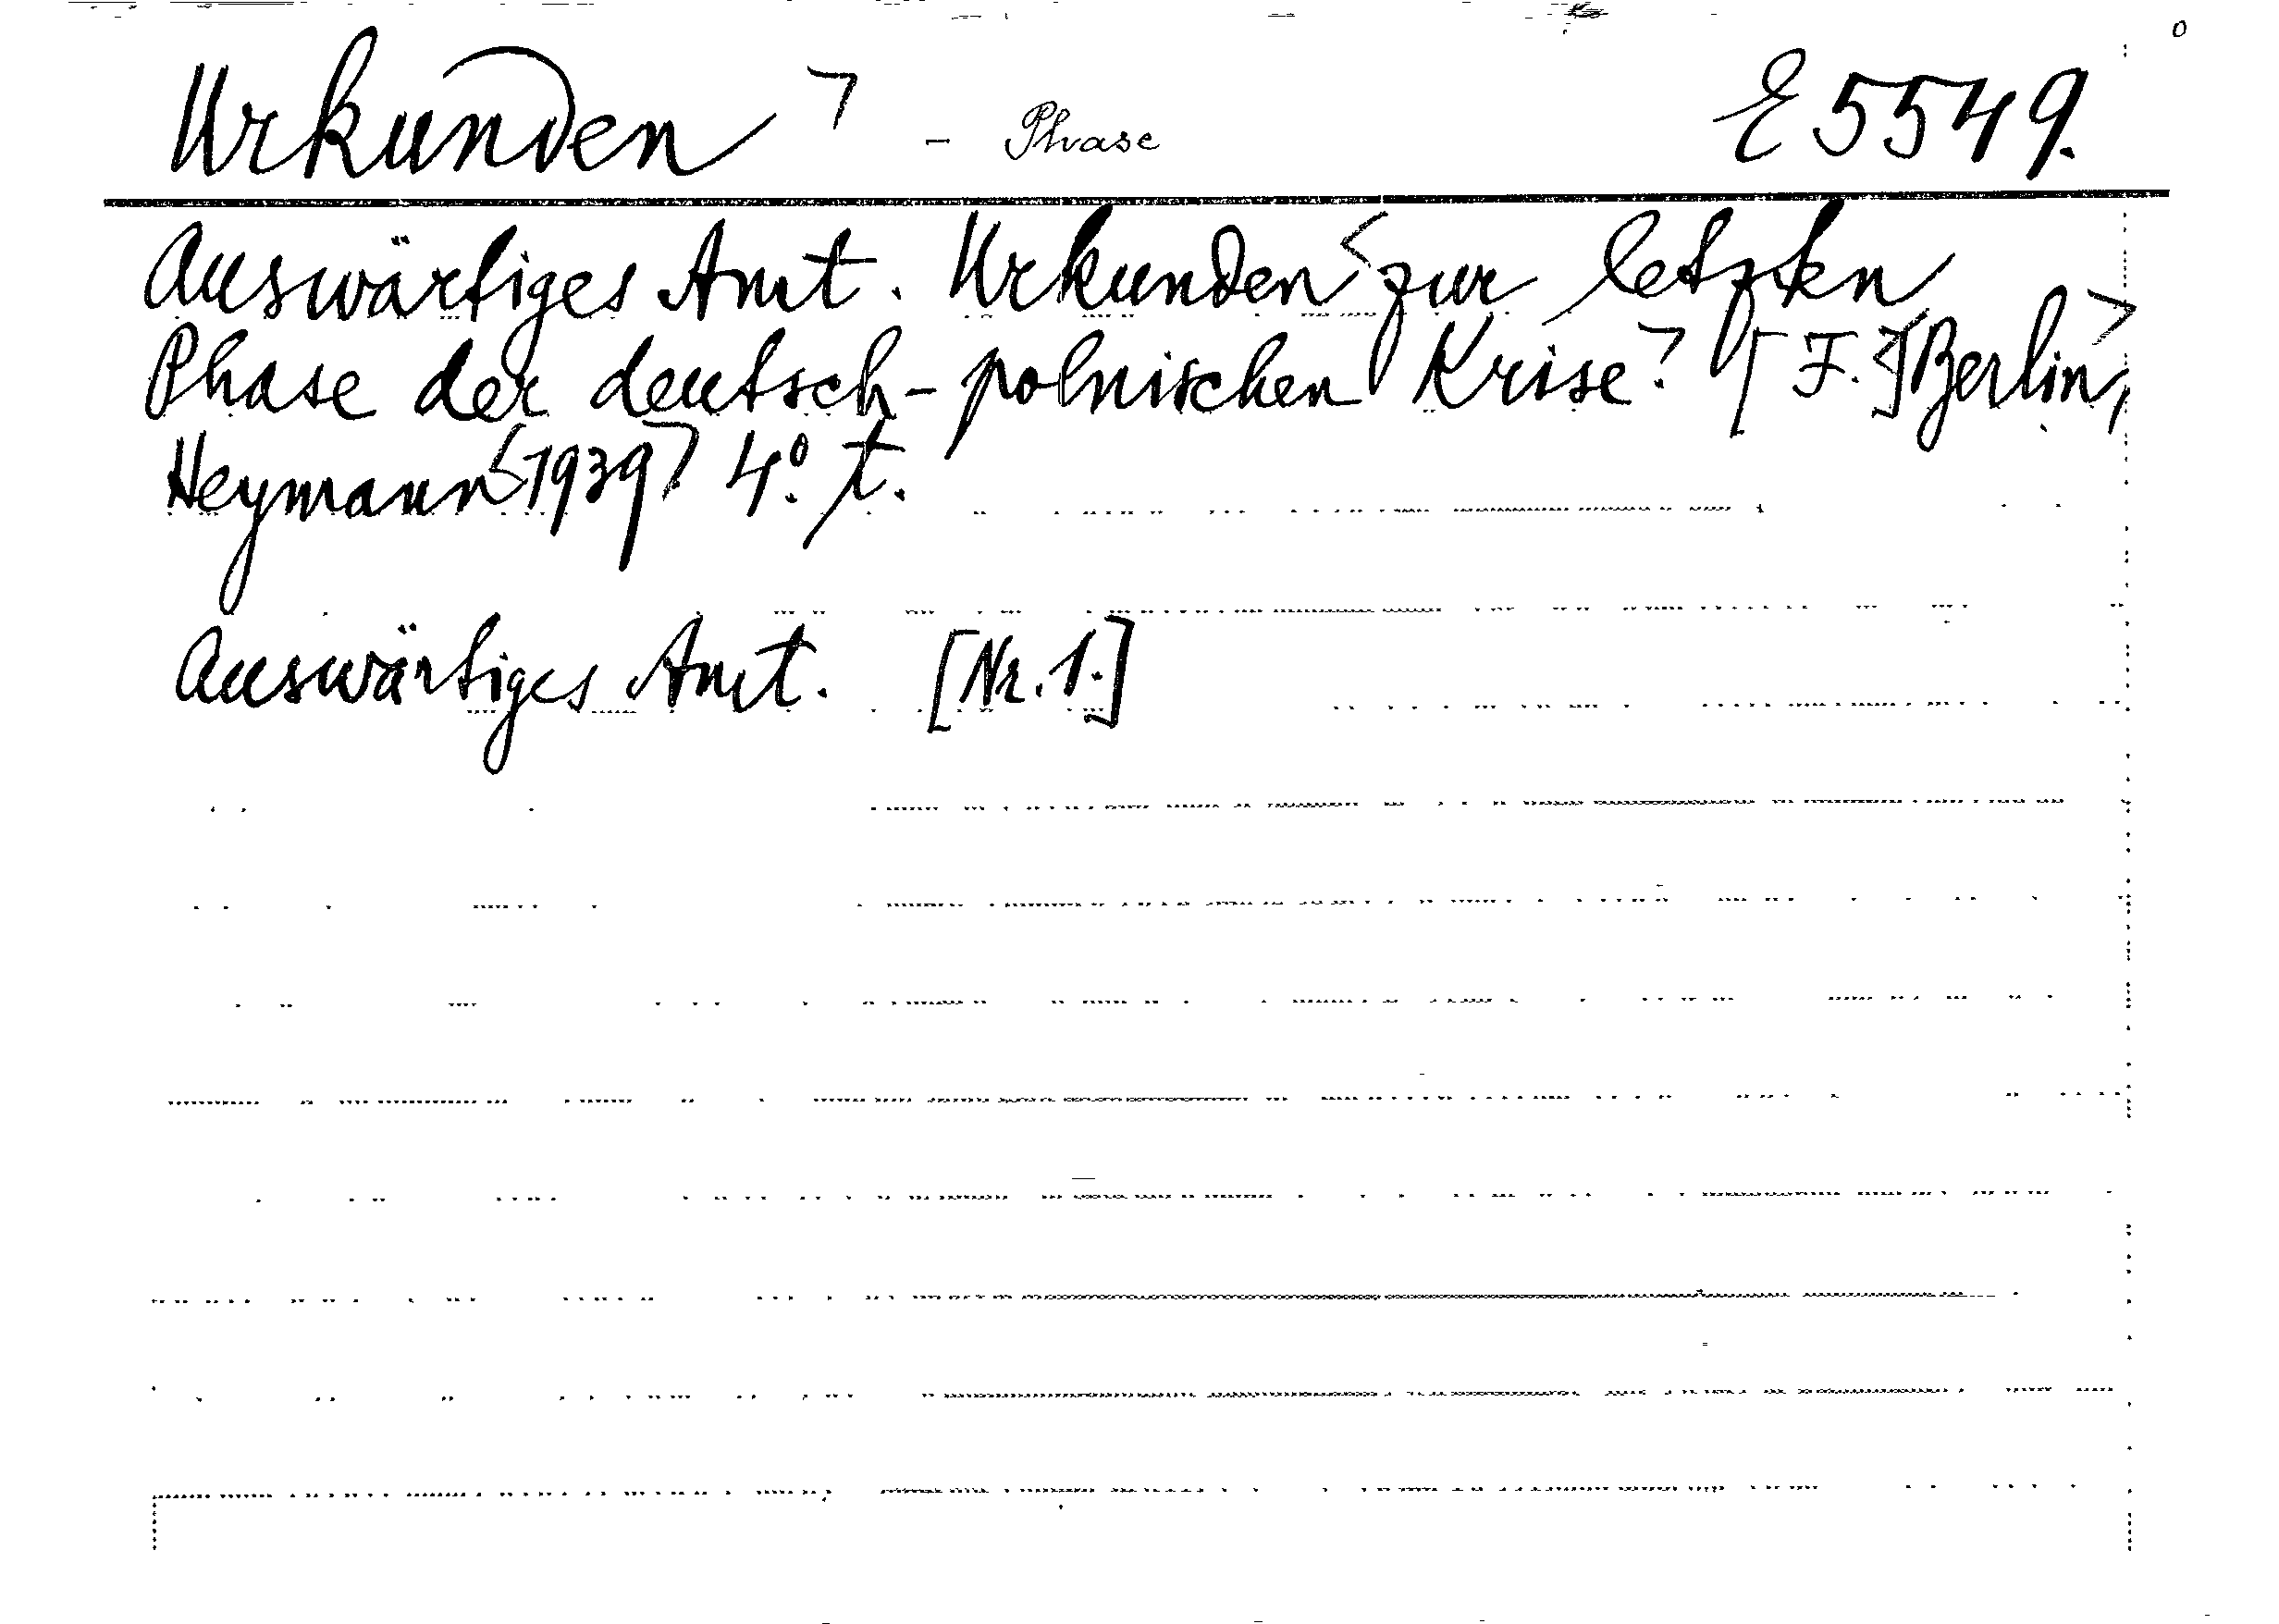 Urkunden ⌝ - Phase E 5549.
Auswärtiges Amt. Urkunden <zur letzten
Phase der deutsch-polnischen Krise. ⌝ [F.] <Berlin, >
Heymann <1939⌝ 4°. t.
Auswärtiges Amt. [Nr. 1.]